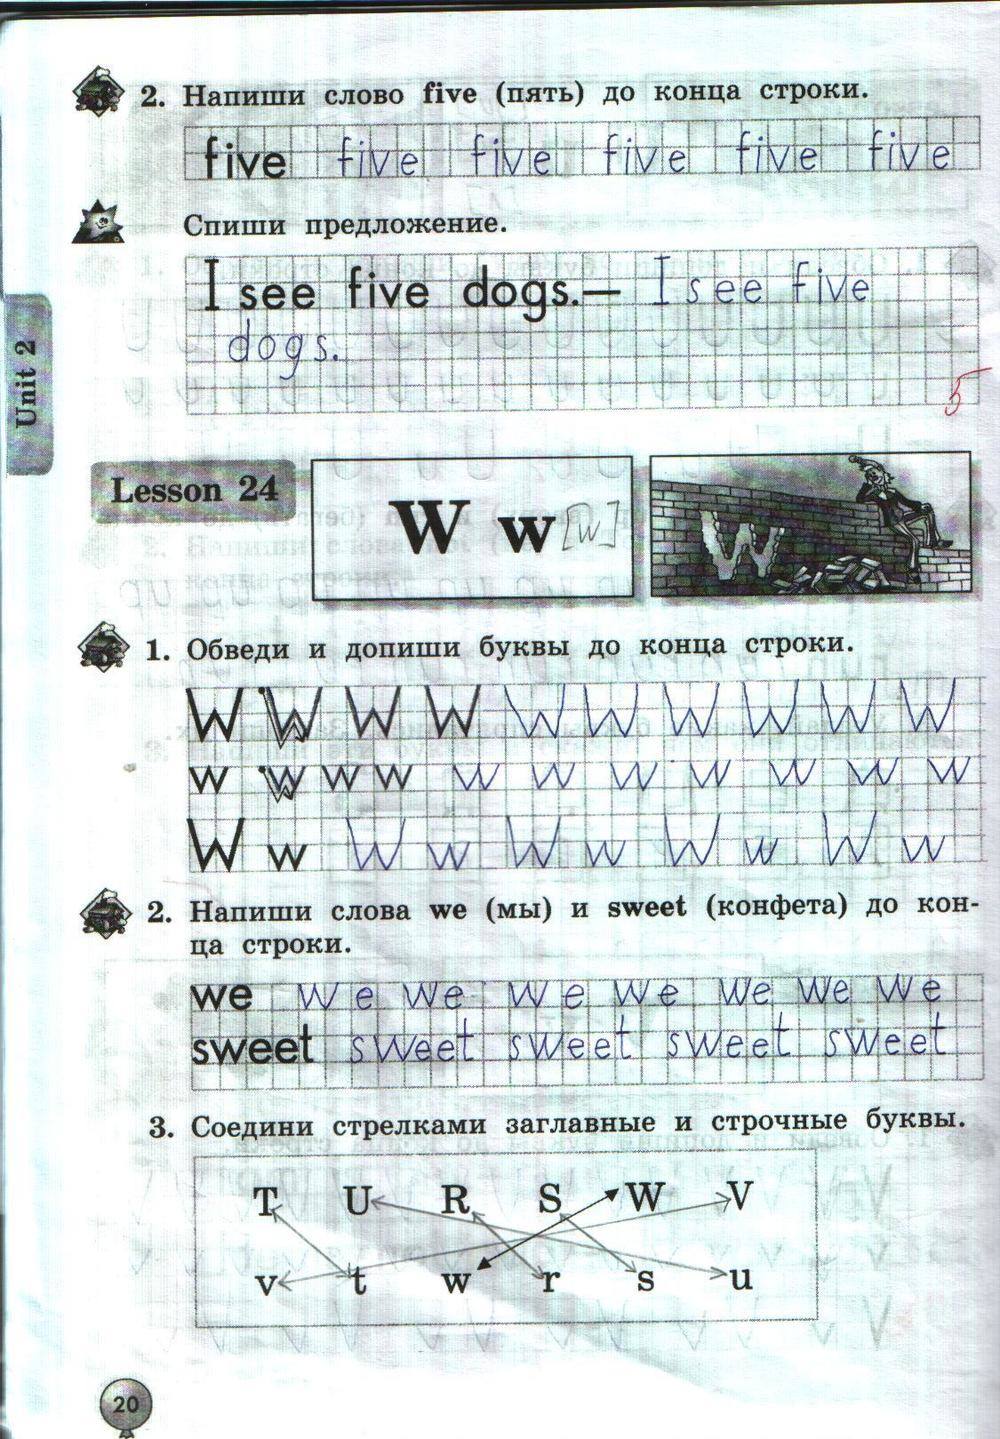 2. Напиши слово five (пять) до конца строки.
five five five five five five
Спиши предложение.
I see five dogs.— I see five
dogs.
5
Unit 2
Lesson 24
W w [w]
W
1. Обведи и допиши буквы до конца строки.
W W W W W W W W W W
w w w w w w w w w w w
W w W w W w W w W w
2. Напиши слова we (мы) и sweet (конфета) до кон-
ца строки.
we we we we we we we we
sweet sweet sweet sweet sweet
3. Соедини стрелками заглавные и строчные буквы.
T U R S W V
v t w r s u
20